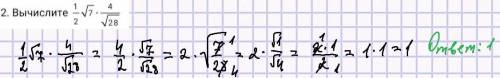 2. Вычислите \frac{1}{2}\sqrt{7} \cdot \frac{4}{\sqrt{28}}
\frac{1}{2}\sqrt{7} \cdot \frac{4}{\sqrt{28}} = \frac{4}{2} \cdot \frac{\sqrt{7}}{\sqrt{28}} = 2 \cdot \sqrt{\frac{7^1}{28_4}} = 2 \cdot \frac{\sqrt{1}}{\sqrt{4}} = \frac{^1 2 \cdot 1}{2_1} = 1 \cdot 1 = 1 Ответ: 1